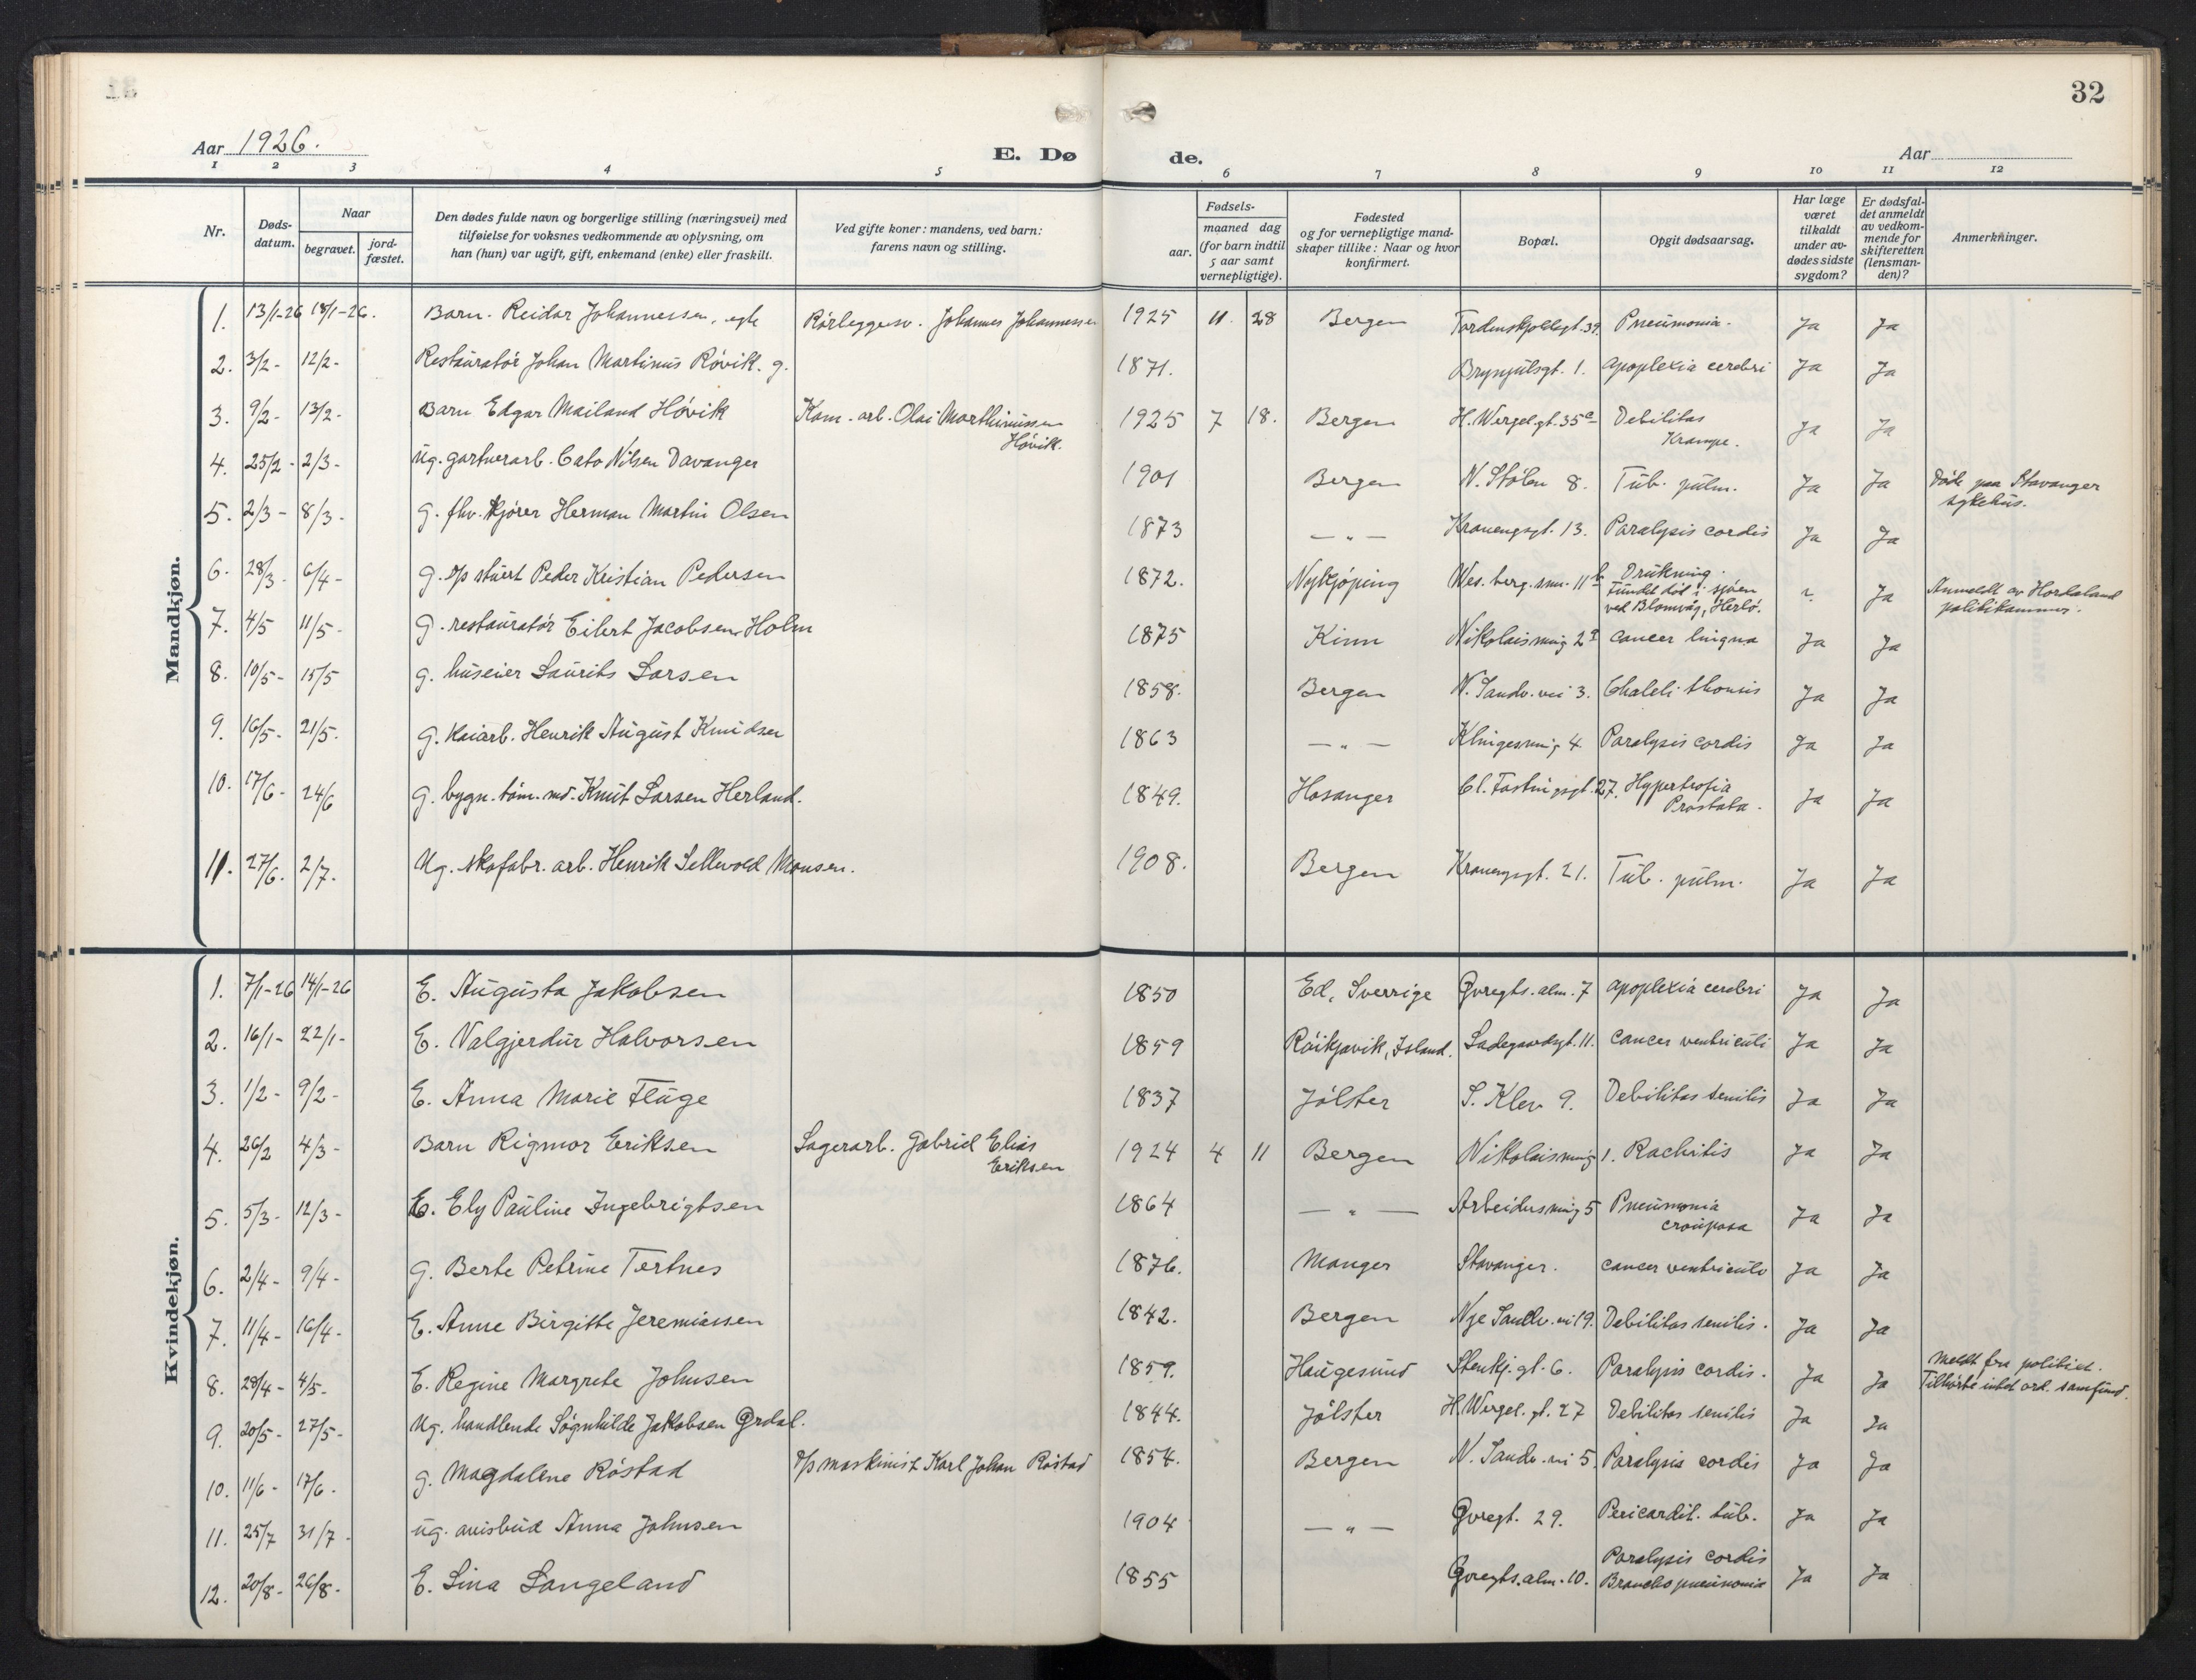 32
Aar 1926.
E. Dø de.
Aar
1 2 3 4 5 6 7 8 9 10 11 12
Nr.
Døds-
datum.
Naar
begravet.
jord-
fæstet.
Den dødes fulde navn og borgerlige stilling (næringsvei) med
tilføielse for voksnes vedkommende av oplysning, om
han (hun) var ugift, gift, enkemand (enke) eller fraskilt.
Ved gifte koner: mandens, ved barn:
farens navn og stilling.
Fødsels-
aar.
maaned dag
(for barn indtil
5 aar samt
vernepligtige).
Fødested
og for vernepligtige mand-
skaper tillike: Naar og hvor
konfirmert.
Bopæl.
Opgit dødsaarsag.
Har læge
været
tilkaldt
under av-
dødes sidste
sygdom?
Er dødsfal-
det anmeldt
av vedkom-
mende for
skifteretten
(lensman-
den)?
Anmerkninger.
Mandkjøn.
1. 13/1-26 18/1-26. Barn. Reidar Johannessen, egte Rørleggesv. Johannes Johannessen 1925 11 28 Bergen Tordenskjoldsgt. 39. Pneumonia. Ja Ja
2. 3/2- 12/2- Restauratør Johan Martinus Røvik. g. 1871. Brynjulsgt. 1. apoplexia cerebri Ja Ja
3. 9/2- 13/2- Barn Edgar Mailand Høvik Kom. arb. Olai Marthinussen 1925 7 18. Bergen H. Wergel. gt. 35 Debilitas Ja Ja
Høvik. Krampe.
4. 25/2- 2/3- Ug. gartnerarb. Cato Nilsen Davanger 1901 Bergen N. Stølen 8. Tub. pulm. Ja Ja Døde paa Stavanger
sykehus.
5. 2/3- 8/3- g. fhv. kjører Herman Martin Olsen 1873 — " — Kronengsgt. 13. Paralysis cordis Ja Ja
6. 28/3- 6/4- g. d/s stuert Peder Kristian Pedersen 1872. Nykjøping Wes. berg. smu. 11 b Drukning. Ja Anmeldt av Hordaland
Fundet død i sjøen politikammer.
ved Blomvåg, Herlø.
7. 4/5 11/5- g. restauratør Eilert Jacobsen Holm 1875 Kinn Nikolaismug 2 cancer lingua Ja Ja
8. 10/5- 15/5 g. huseier Laurits Larsen 1858. Bergen N. Sandv. vei 3. Ja Ja
9. 16/5- 21/5. g. Kaiarb. Henrik August Knudsen 1863 — " — Klingesmug 4. Paralysis cordis Ja Ja
10. 17/6- 24/6 g. bygn. tøm. md. Knut Larsen Herland. 1849. Hosanger Cl. Fastingsgt. 27. Hypertrofia Ja Ja
Prostata.
11. 27/6. 2/7. Ug. skofabr. arb. Henrik Sellevold Monsen. 1908. Bergen Kronengsgt. 21. Tub. pulm. Ja Ja
Kvindekjøn.
1. 7/1-26 14/1-26 E. Augusta Jakobsen 1850 Ed, Sverrige Øvregts. alm. 7 apoplexia cerebri Ja Ja
2. 16/1- 22/1- E. Valgjerdur Halvorsen 1859 Röikjavik, Island. Ladegaardsgt. 11. cancer ventriculi Ja Ja
3. 1/2- 9/2- E. Anna Marie Fluge 1837 Jølster S. Klev 9. Debilitas senilis Ja Ja
4. 26/2 4/3- Barn Rigmor Eriksen Lagerarb. Gabriel Elias 1924 4 11 Bergen Nikolaismug 1. Rachitis Ja Ja
Eriksen
5. 5/3- 12/3- E. Ely Pauline Ingebrigtsen 1864 — " — Arbeidersmug 5 Pneumonia Ja Ja
crouposa
6. 2/4- 9/4- g. Berte Petrine Tertnes 1876. Manger Stavanger. cancer ventriculo Ja Ja
7. 11/4- 16/4- E. Anne Birgitte Jeremiassen 1842. Bergen Nye Sandv. vei 19. Debilitas senilis. Ja Ja
8. 28/4- 4/5- E. Regine Margrete Johnsen 1859. Haugesund Stenkj. gt. 6. Paralysis cordis. Ja Ja Meldt fra politiet.
Tilhørte intet ord. samfund.
9. 20/5- 27/5- Ug. handlende Søgnhilde Jakobsen Årdal. 1844. Jølster H. Wergel. gt. 27 Debilitas senilis Ja Ja
10. 11/6- 17/6- g. Magdalene Røstad d/s maskinist Karl Johan Røstad 1854. Bergen N. Sandv. vei 5. Paralysis cordis Ja Ja
11. 25/7 31/7- ug. avisbud Anna Johnsen 1904 — " — Øvregt. 29. Pericardit. tub. Ja Ja
12. 20/8- 26/8- E. Lina Langeland 1855 Øvregts. alm. 10. Paralysis cordis Ja Ja
Bronchopneumonia